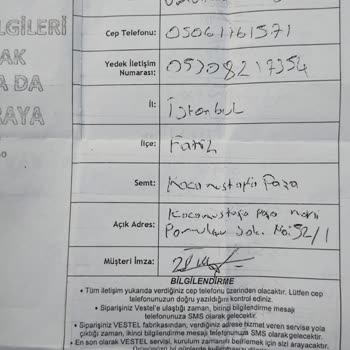 LGİLERİ
AK
A DA
RAYA
Cep Telefonu: 05061761571
Yedek İletişim
Numarası: 05308217354
İl: İstanbul
İlçe: Fatih
Semt: Kocamustafa Paşa
Açık Adres: Kocamustafa Paşa mah
Sok. No: 52/1
Müşteri İmza:
BİLGİLENDİRME
• Tüm iletişim yukarıda verdiğiniz cep telefonu üzerinden olacaktır. Lütfen cep
telefonunuzun doğru yazıldığını kontrol ediniz.
• Siparişiniz Vestel'e ulaştığı zaman, birinci bilgilendirme mesajı
telefonunuza SMS olarak gelecektir.
• Siparişiniz VESTEL fabrikasından, verdiğiniz adrese hizmet veren servise yola
çıktığı zaman, ikinci bilgilendirme mesajı telefonunuza SMS olarak gelecektir.
• En son olarak VESTEL servisi, kurulum zamanını belirlemek için sizi arayacaktır.